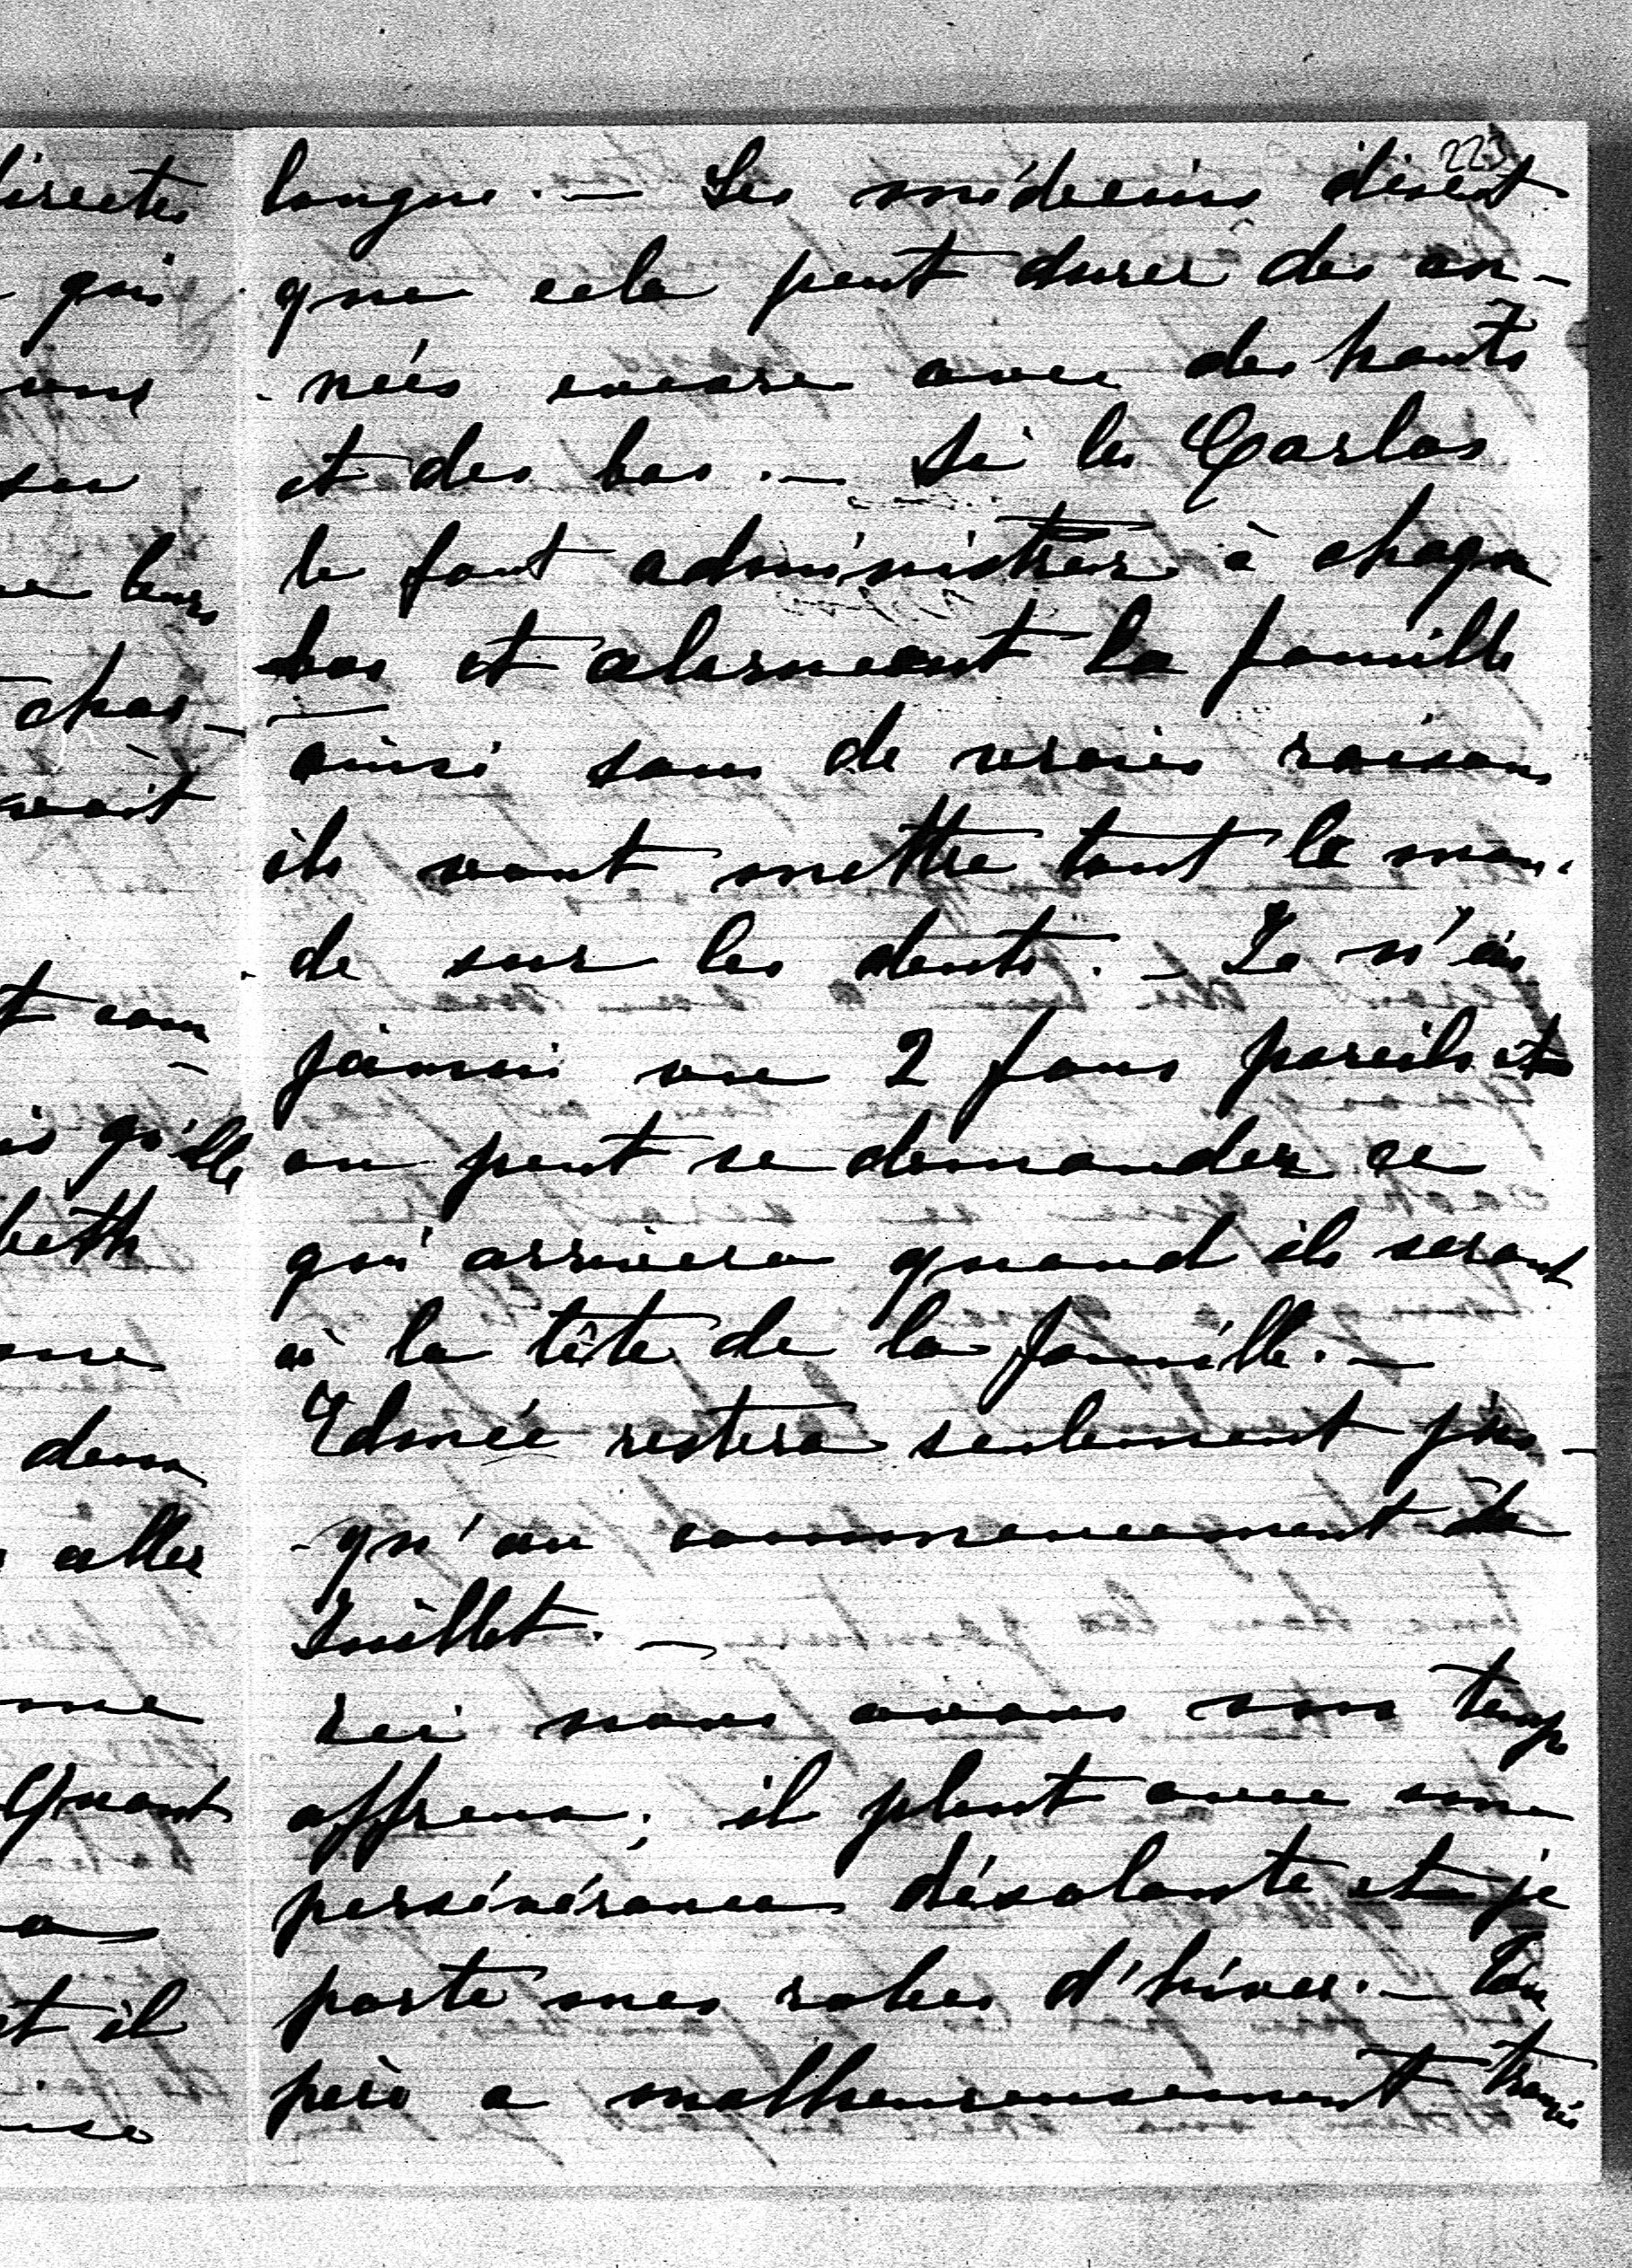 223
longue. — Les médecins disent
que cela peut durer des an-
nées encore avec des hauts
et des bas. — Si les Carlos
le font administrer à chaque
bas et alarment la famille
ainsi sans de vraies raisons
ils vont mettre tout le mon-
de sur les dents. — Je n'ai
jamais vu 2 fous pareils et
on peut se demander ce
qui arrivera quand ils seront
à la tête de la famille. —
Edmée restera seulement jus-
qu'au commencement de
Juillet. —
Ici nous avons un temps
affreux; il pleut avec une
persévérance désolante et je
porte mes robes d'hiver. — Ton
père a malheureusement
directes
qui
leurs
avait
qu'elle
beth
aller
Quant
et il